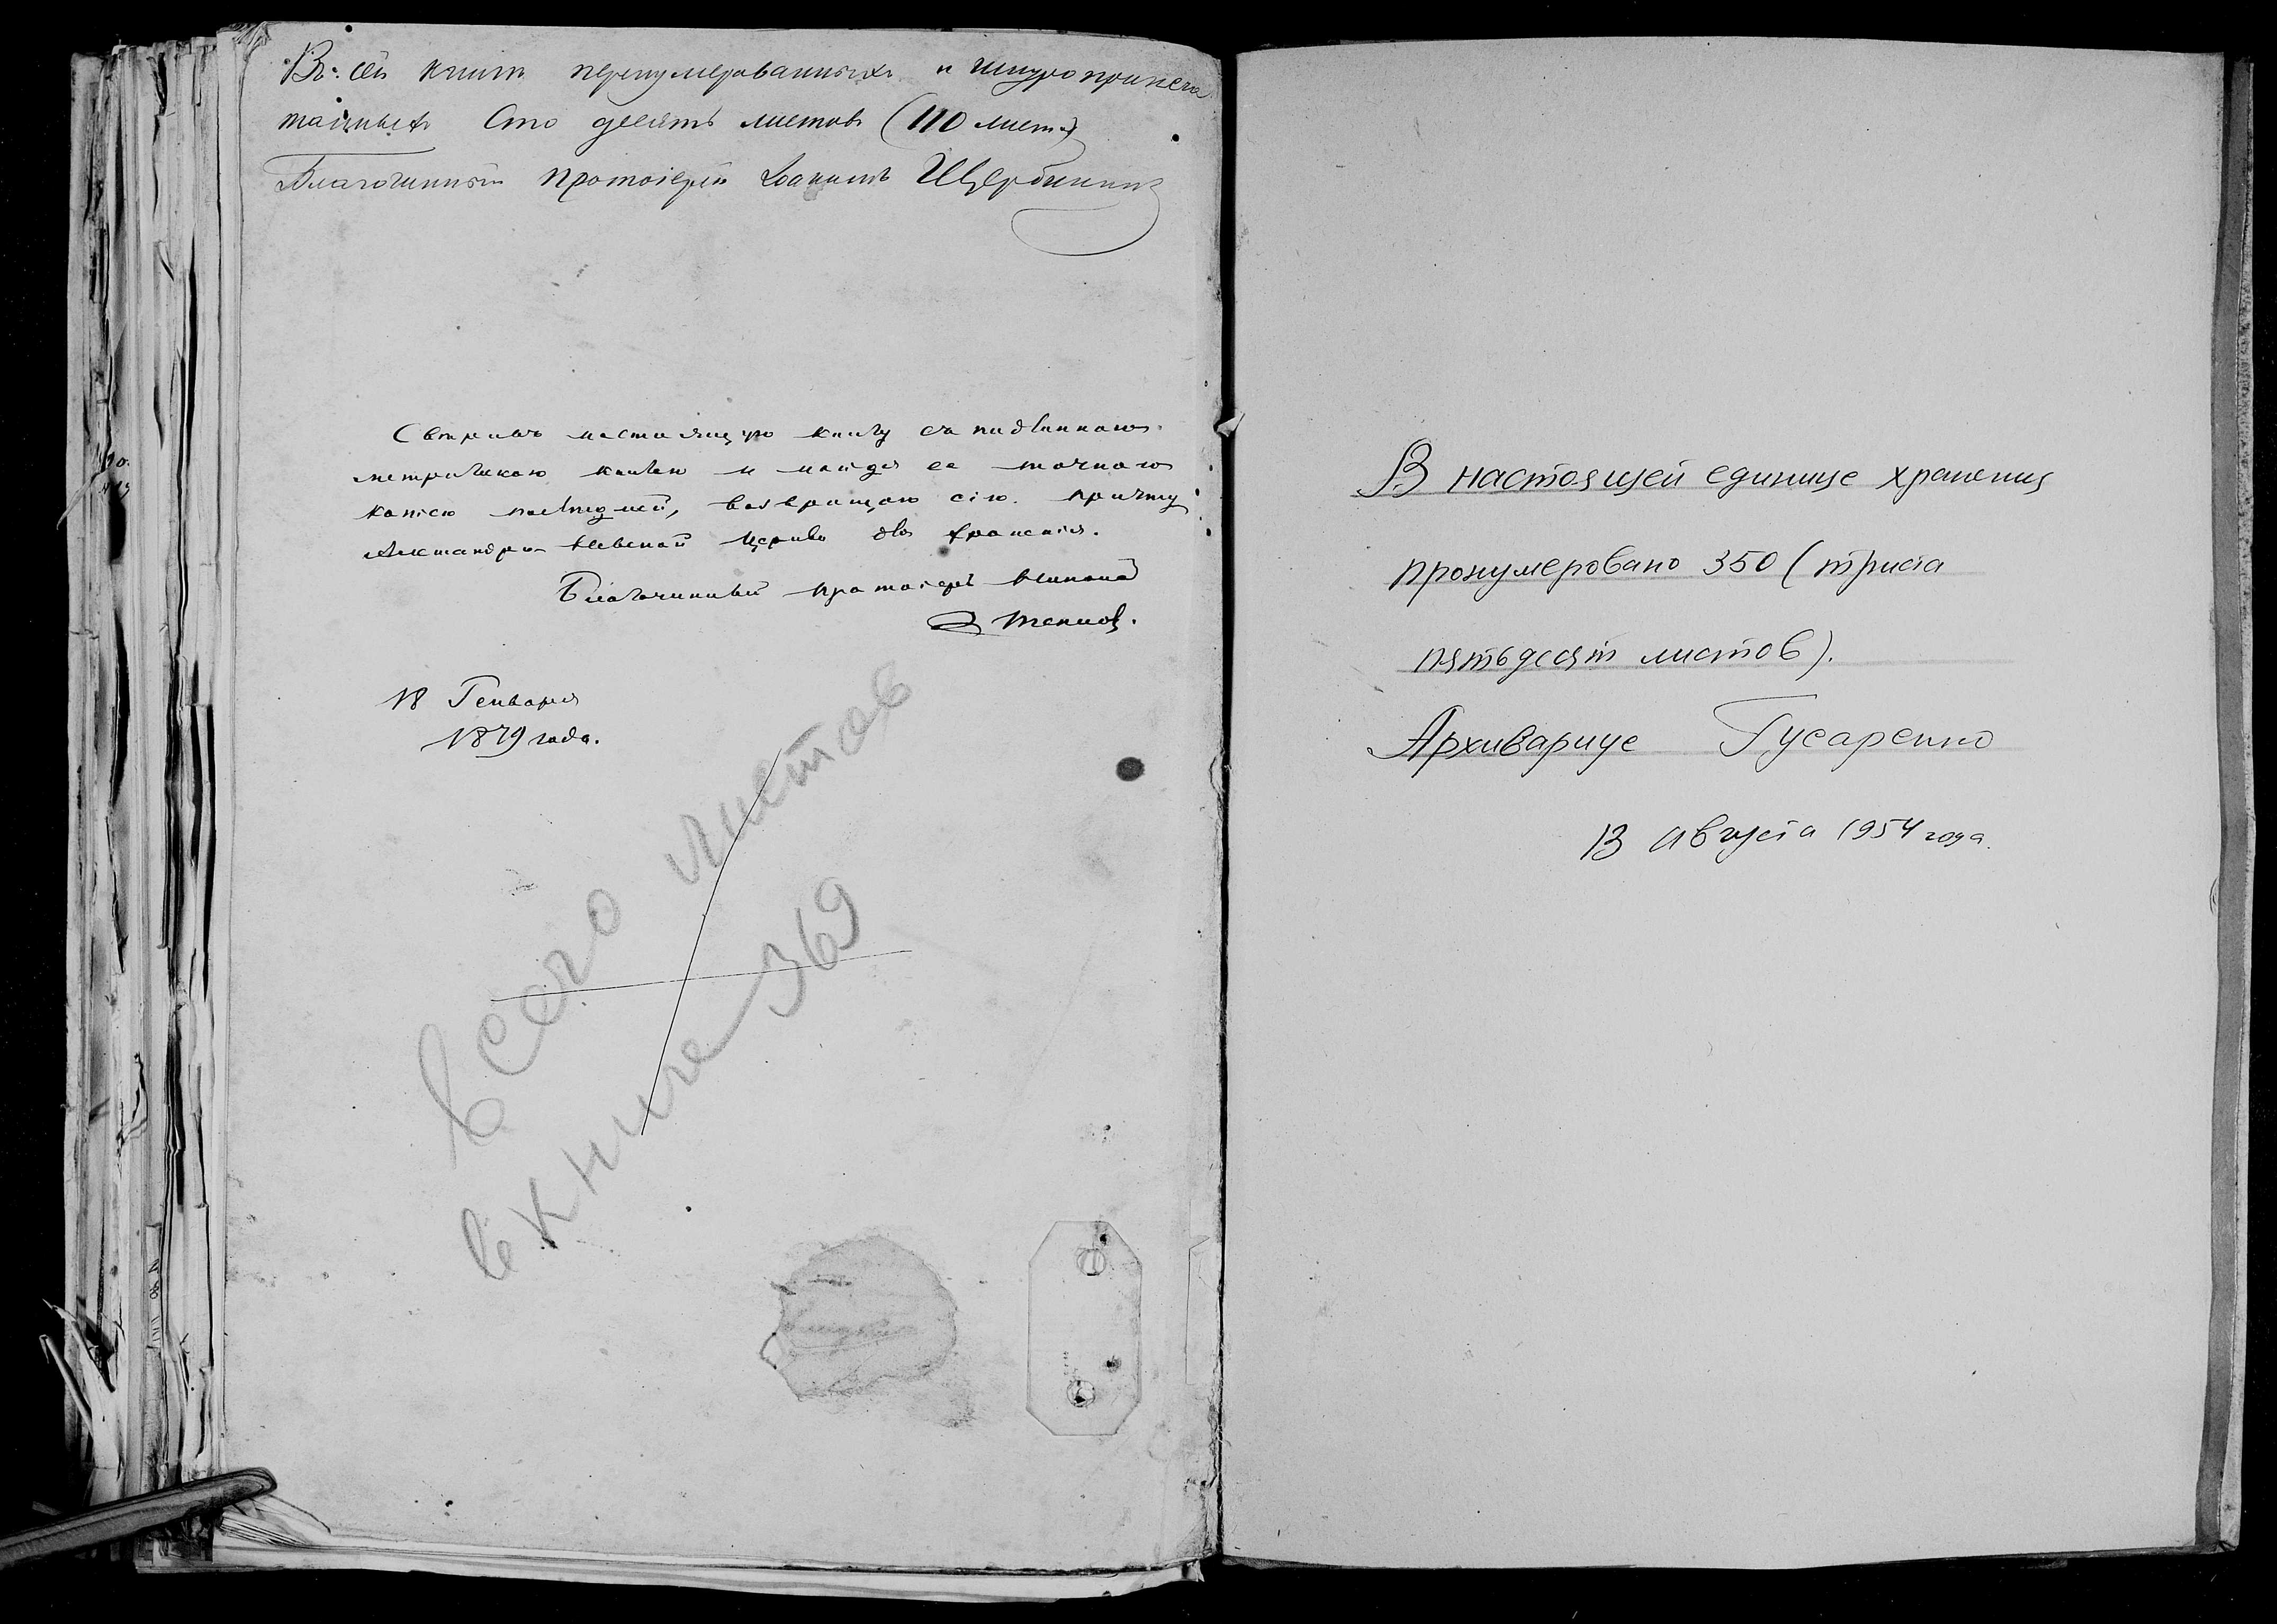 Въ сей книгѣ перенумерованныхъ и шнуроприпеча
танныхъ Сто десять листовъ (110 лист.)
Благочинный Протоіерей Іоаннъ Щербининъ
Свѣривъ настоящую книгу съ подлинною
метрическою книгою и найдя ее точною
копіею послѣдней, возвращаю сію причту
Александро-Невской Церкви для храненія.
Благочинный протоіерей Николай
18 Генваря
1879 года.
всего листов
в книге 369
В настоящей единице хранения
пронумеровано 350 (триста
пятьдесят листов).
Архивариус Гусаренко
13 августа 1954 года.